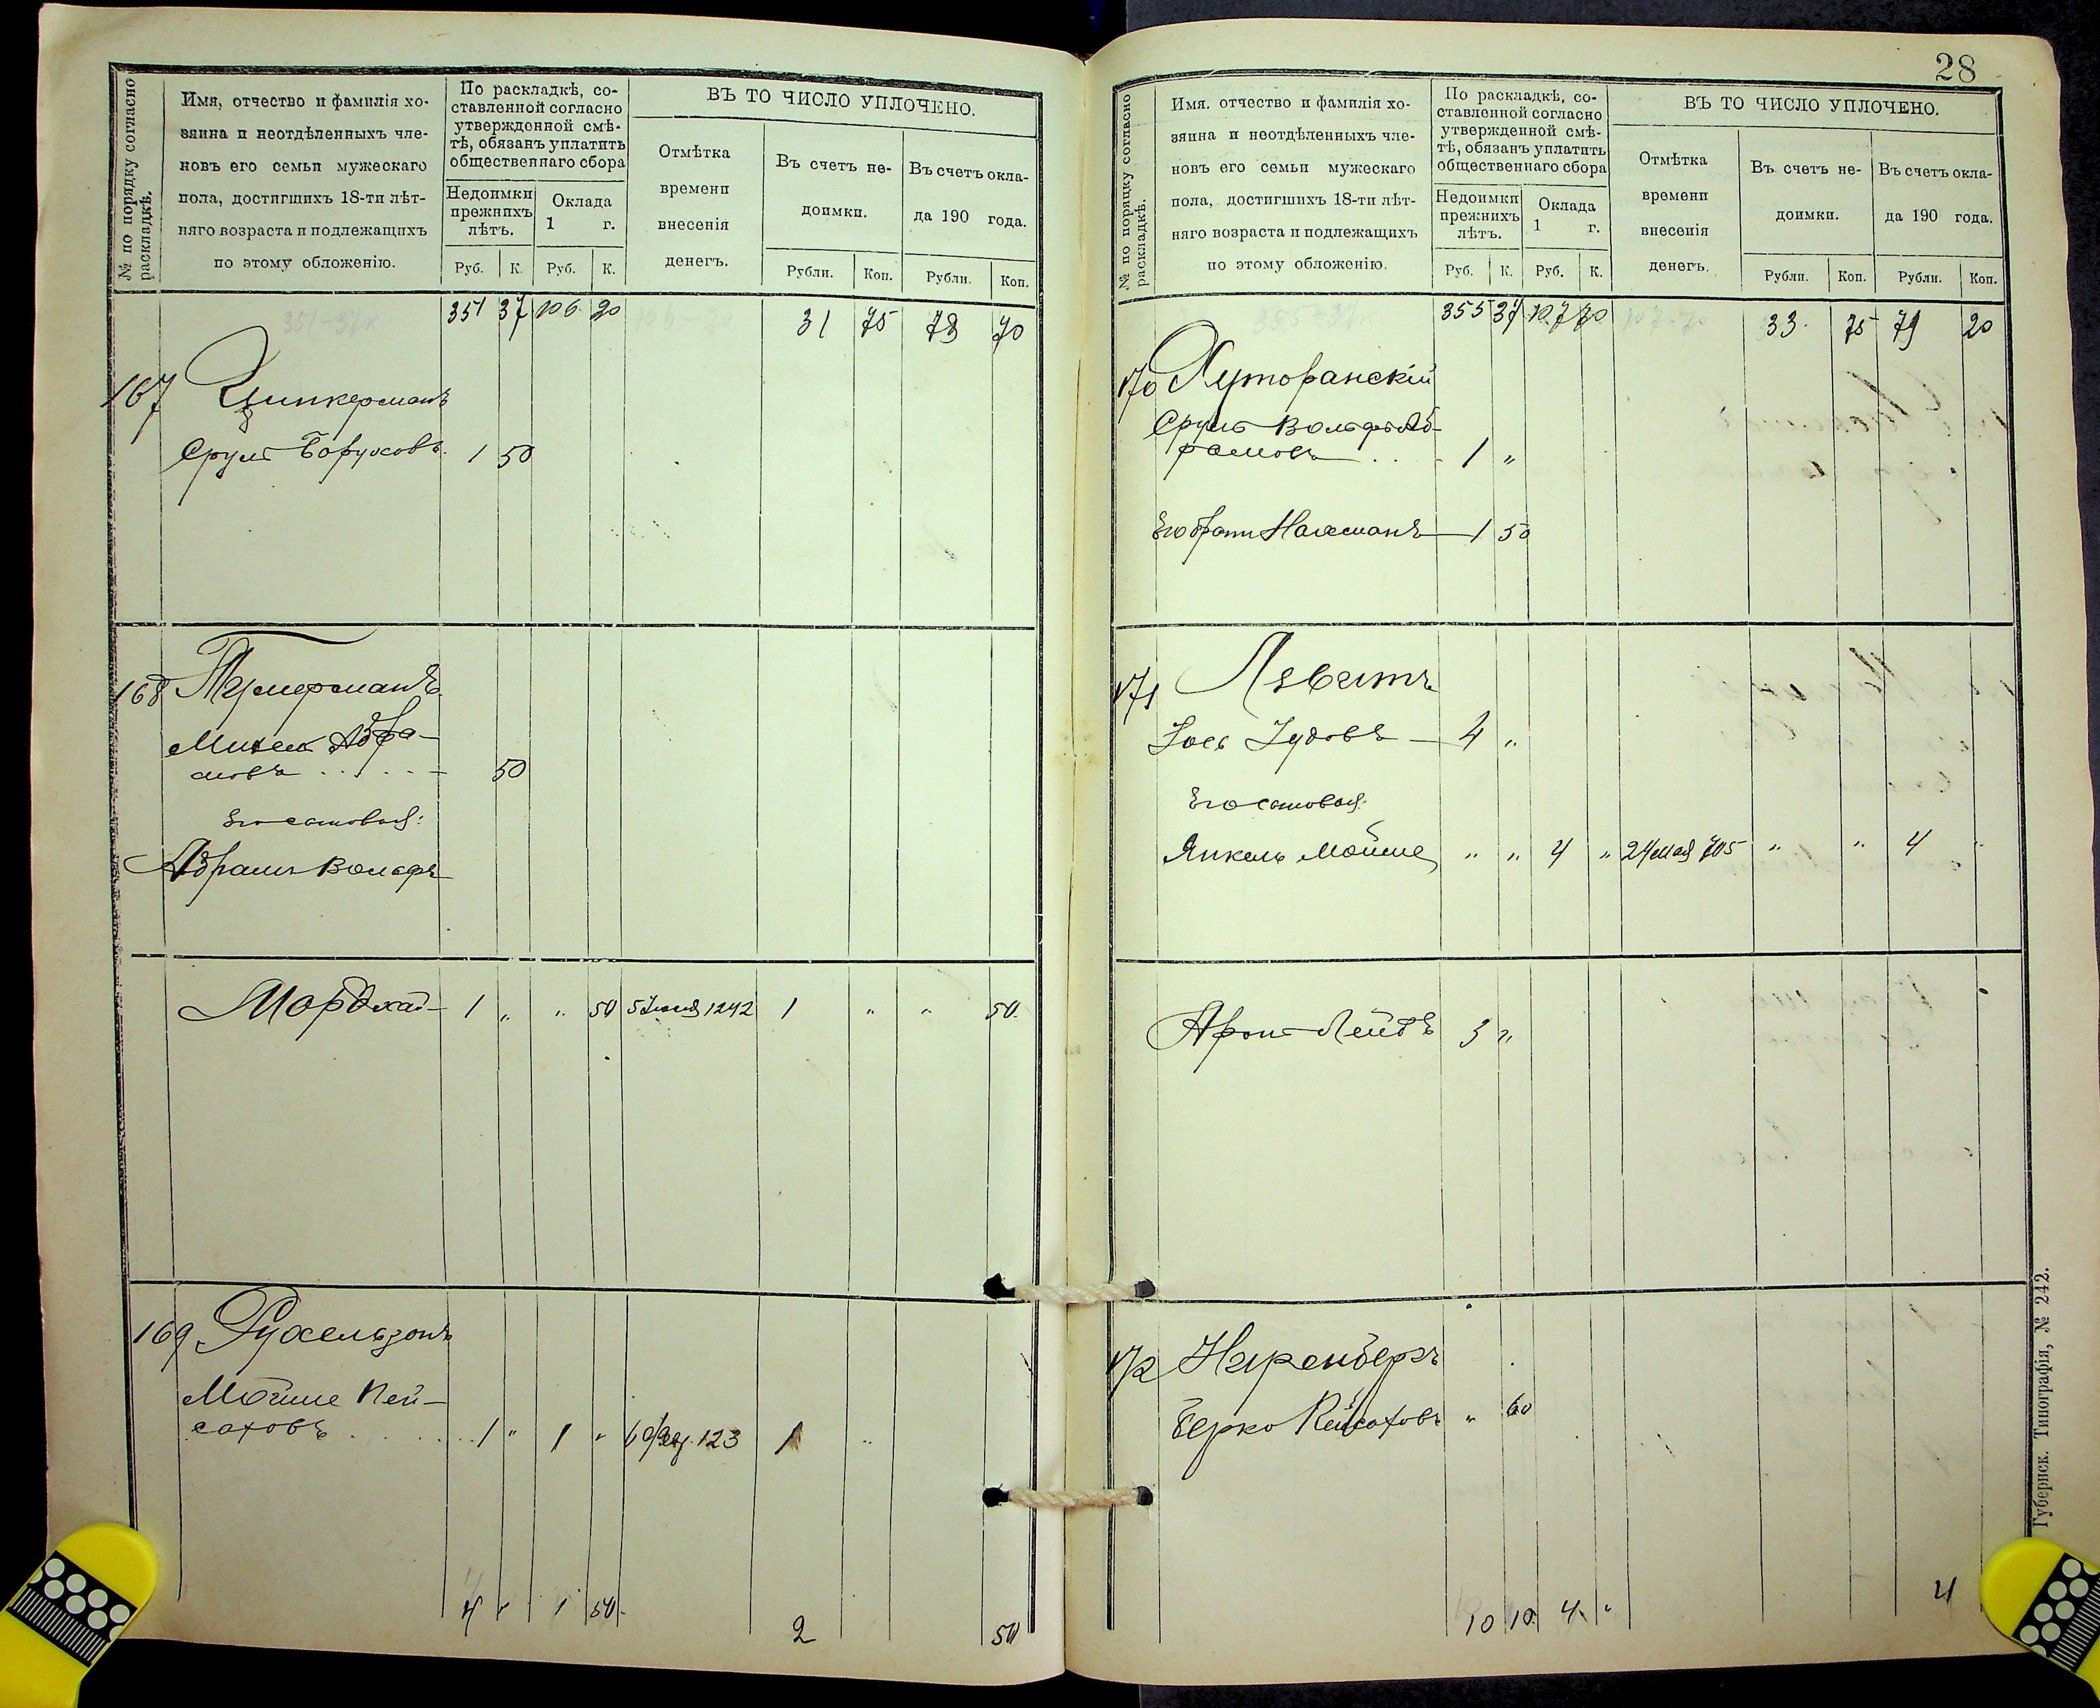 № по порядку согласно раскладкѣ.
Имя, отчество и фамилія хо-
зяина и неотдѣленныхъ чле-
новъ его семьи мужескаго
пола, достигшихъ 18-ти лѣт-
няго возраста и подлежащихъ
по этому обложенію.
По раскладкѣ, со-
ставленной согласно
утвержденной смѣ-
тѣ, обязанъ уплатить
общественнаго сбора
Недоимки
прежнихъ
лѣтъ.
Оклада
1 г.
Руб. К. Руб. К.
ВЪ ТО ЧИСЛО УПЛОЧЕНО.
Отмѣтка
времени
внесенія
денегъ.
Въ счетъ не-
доимки.
Въ счетъ окла-
да 190 года.
Рубли. Коп. Рубли. Коп.
351 37 106 20 31 75 78 70
167 Цинкерманъ
Сруль Боруховъ. 1 50
168
Абра-
мовъ . . . . . 50
Его сыновья:
Абрамъ Вольфъ
Мордхай 1 " " 50 5 Іюня 1242 1 " " 50.
169 Рухельзонъ
Мойше Пей-
саховъ . . . . . . 1 " 1 " 123 1 "
4 " 1 50. 2 50
28
№ по порядку согласно раскладкѣ.
Имя. отчество и фамилія хо-
зяина и неотдѣленныхъ чле-
новъ его семьи мужескаго
пола, достигшихъ 18-ти лѣт-
няго возраста и подлежащихъ
по этому обложенію.
По раскладкѣ, со-
ставленной согласно
утвержденной смѣ-
тѣ, обязанъ уплатить
общественнаго сбора
Недоимки
прежнихъ
лѣтъ.
Оклада
1 г.
Руб. К. Руб. К.
ВЪ ТО ЧИСЛО УПЛОЧЕНО.
Отмѣтка
времени
внесенія
денегъ.
Въ счетъ не-
доимки.
Въ счетъ окла-
да 190 года.
Рубли. Коп. Рубли. Коп.
355 37 107 70 33 75 79 20
170 Хуторанскій
Сруль Вольфъ Аб-
рамовъ . . . 1 "
Его братъ Нахманъ 1 50
171 Левитъ
Іось Іудовъ 4 "
Его сыновья:
Янкель Мойше " " 4 " 24 Мая 705 " " 4 "
Аронъ Лейбъ 3 "
172 Ниренбергъ
Берко Пейсаховъ " 60
10 10 4 " 4
Губернск. Типографія, № 242.